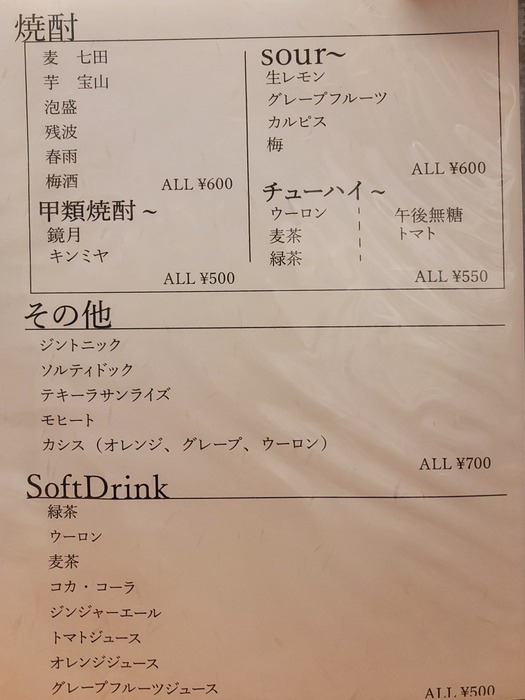 焼酎
麦 七田
芋 宝山
泡盛
残波
春雨
梅酒
ALL ¥600
甲類焼酎～
鏡月
キンミヤ
ALL ¥500
sour～
生レモン
グレープフルーツ
カルピス
梅
ALL ¥600
チューハイ～
ウーロン
麦茶
緑茶
午後無糖
トマト
ALL ¥550
その他
ジントニック
ソルティドック
テキーラサンライズ
モヒート
カシス（オレンジ、グレープ、ウーロン）
ALL ¥700
SoftDrink
緑茶
ウーロン
麦茶
コカ・コーラ
ジンジャーエール
トマトジュース
オレンジジュース
グレープフルーツジュース
ALL ¥500